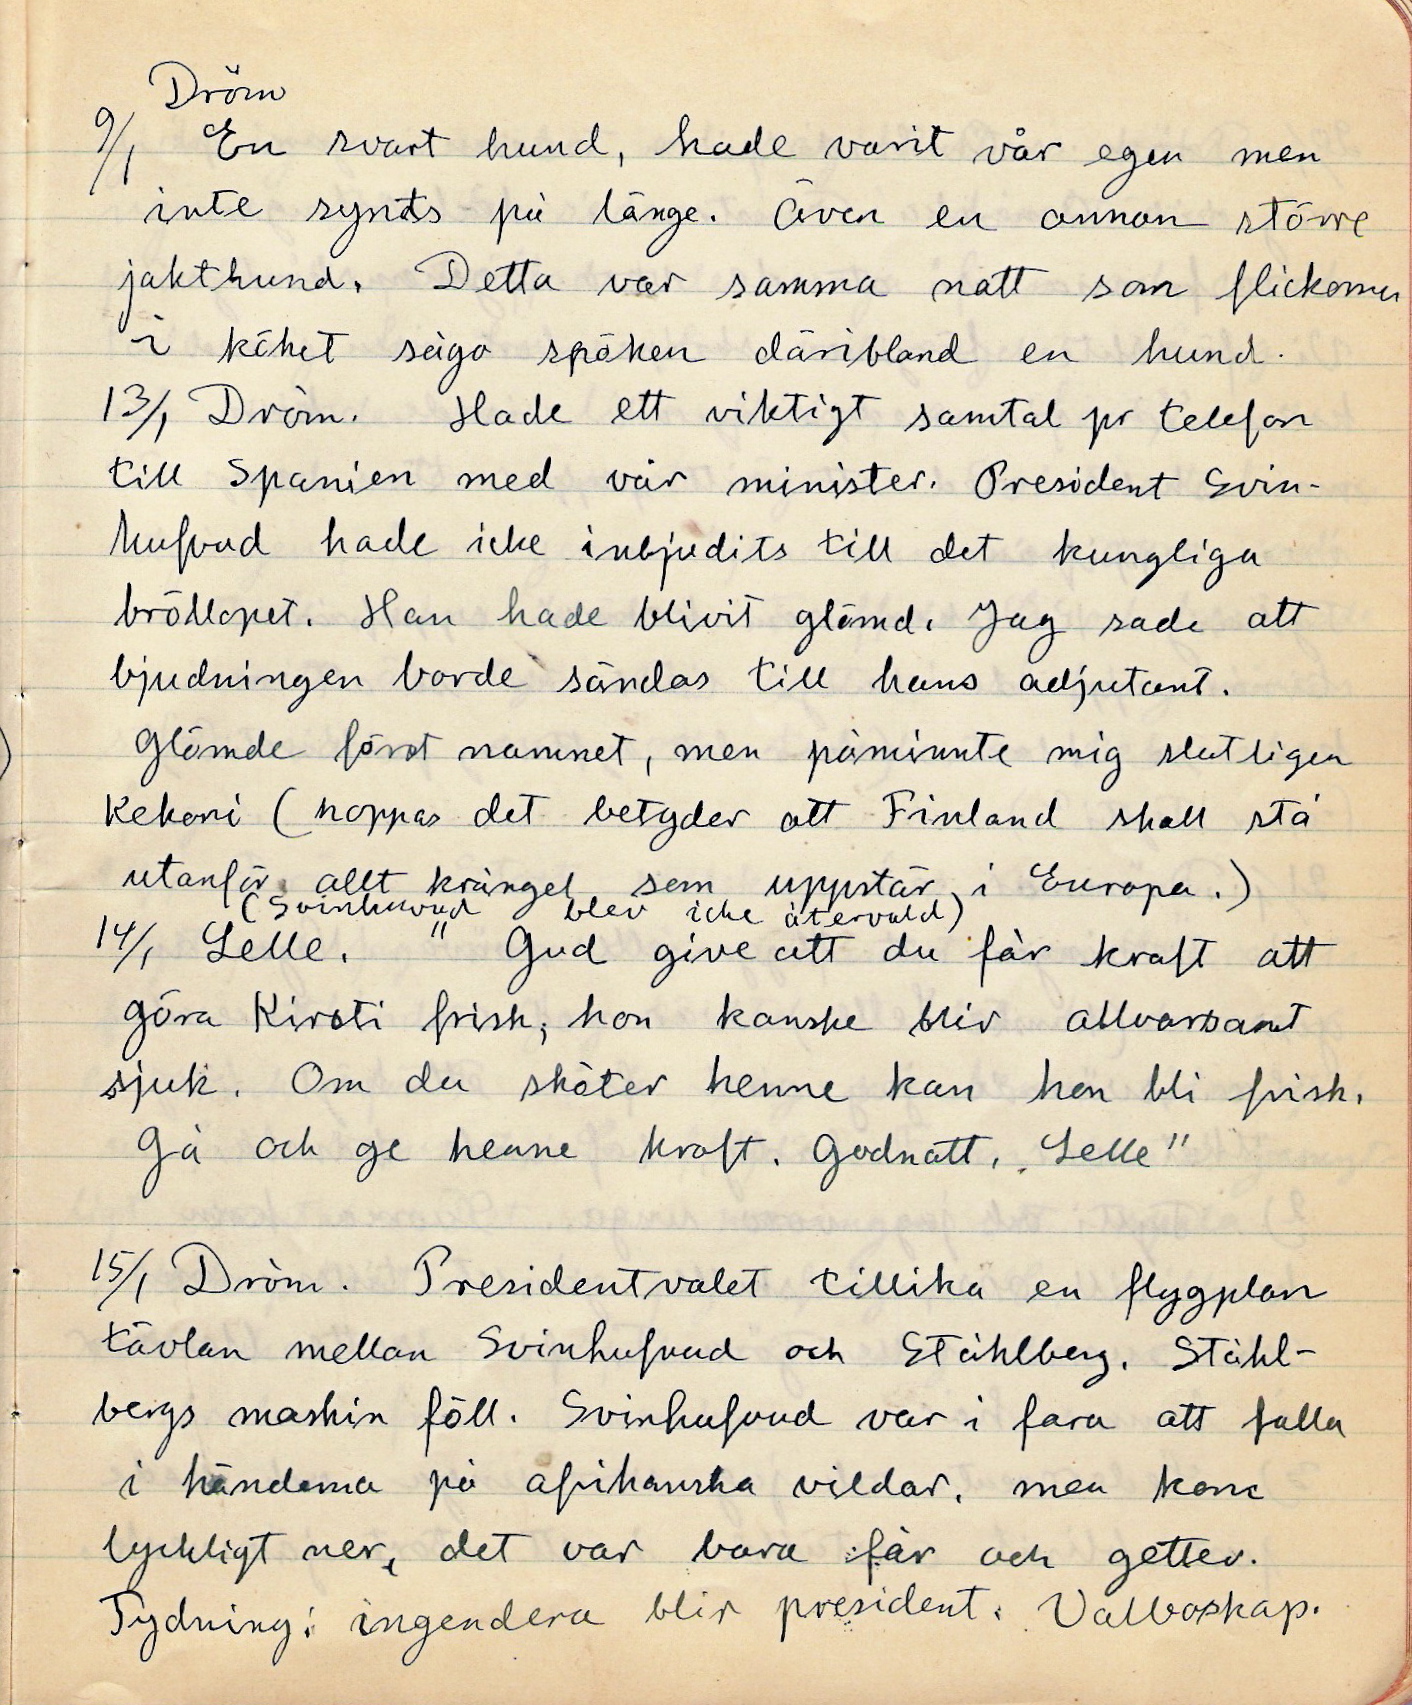 Dröm
9/1 En svart hund, hade varit vår egen men
inte synts på länge. Även en annan större
jakthund. Detta var samma natt som flickorna
i köket sågo spöken däribland en hund.
13/1 Dröm. Hade ett viktigt samtal pr telefon
till Spanien med vår minister. President Svin-
hufvud hade icke inbjudits till det kungliga
bröllopet. Han hade blivit glömd. Jag sade att
bjudningen borde sändas till hans adjutant.
Glömde först namnet, men påminnte mig slutligen
Kekoni (hoppas det betyder att Finland skall stå
utanför allt krångel som uppstår i Europa.)
(Svinhuvud blev icke återvald)
14/1 Lelle. " Gud give att du får kraft att
göra Kirsti frisk, hon kanske blir allvarsamt
sjuk. Om du sköter henne kan hon bli frisk.
Gå och ge henne kraft. Godnatt, Lelle"
15/1 Dröm. Presidentvalet tillika en flygplan
tävlan mellan Svinhufvud och Ståhlberg. Ståhl-
bergs maskin föll. Svinhufvud var i fara att falla
i händerna på afrikanska vildar, men kom
lyckligt ner, det var bara får och getter.
Tydning: ingendera blir president. Valboskap.